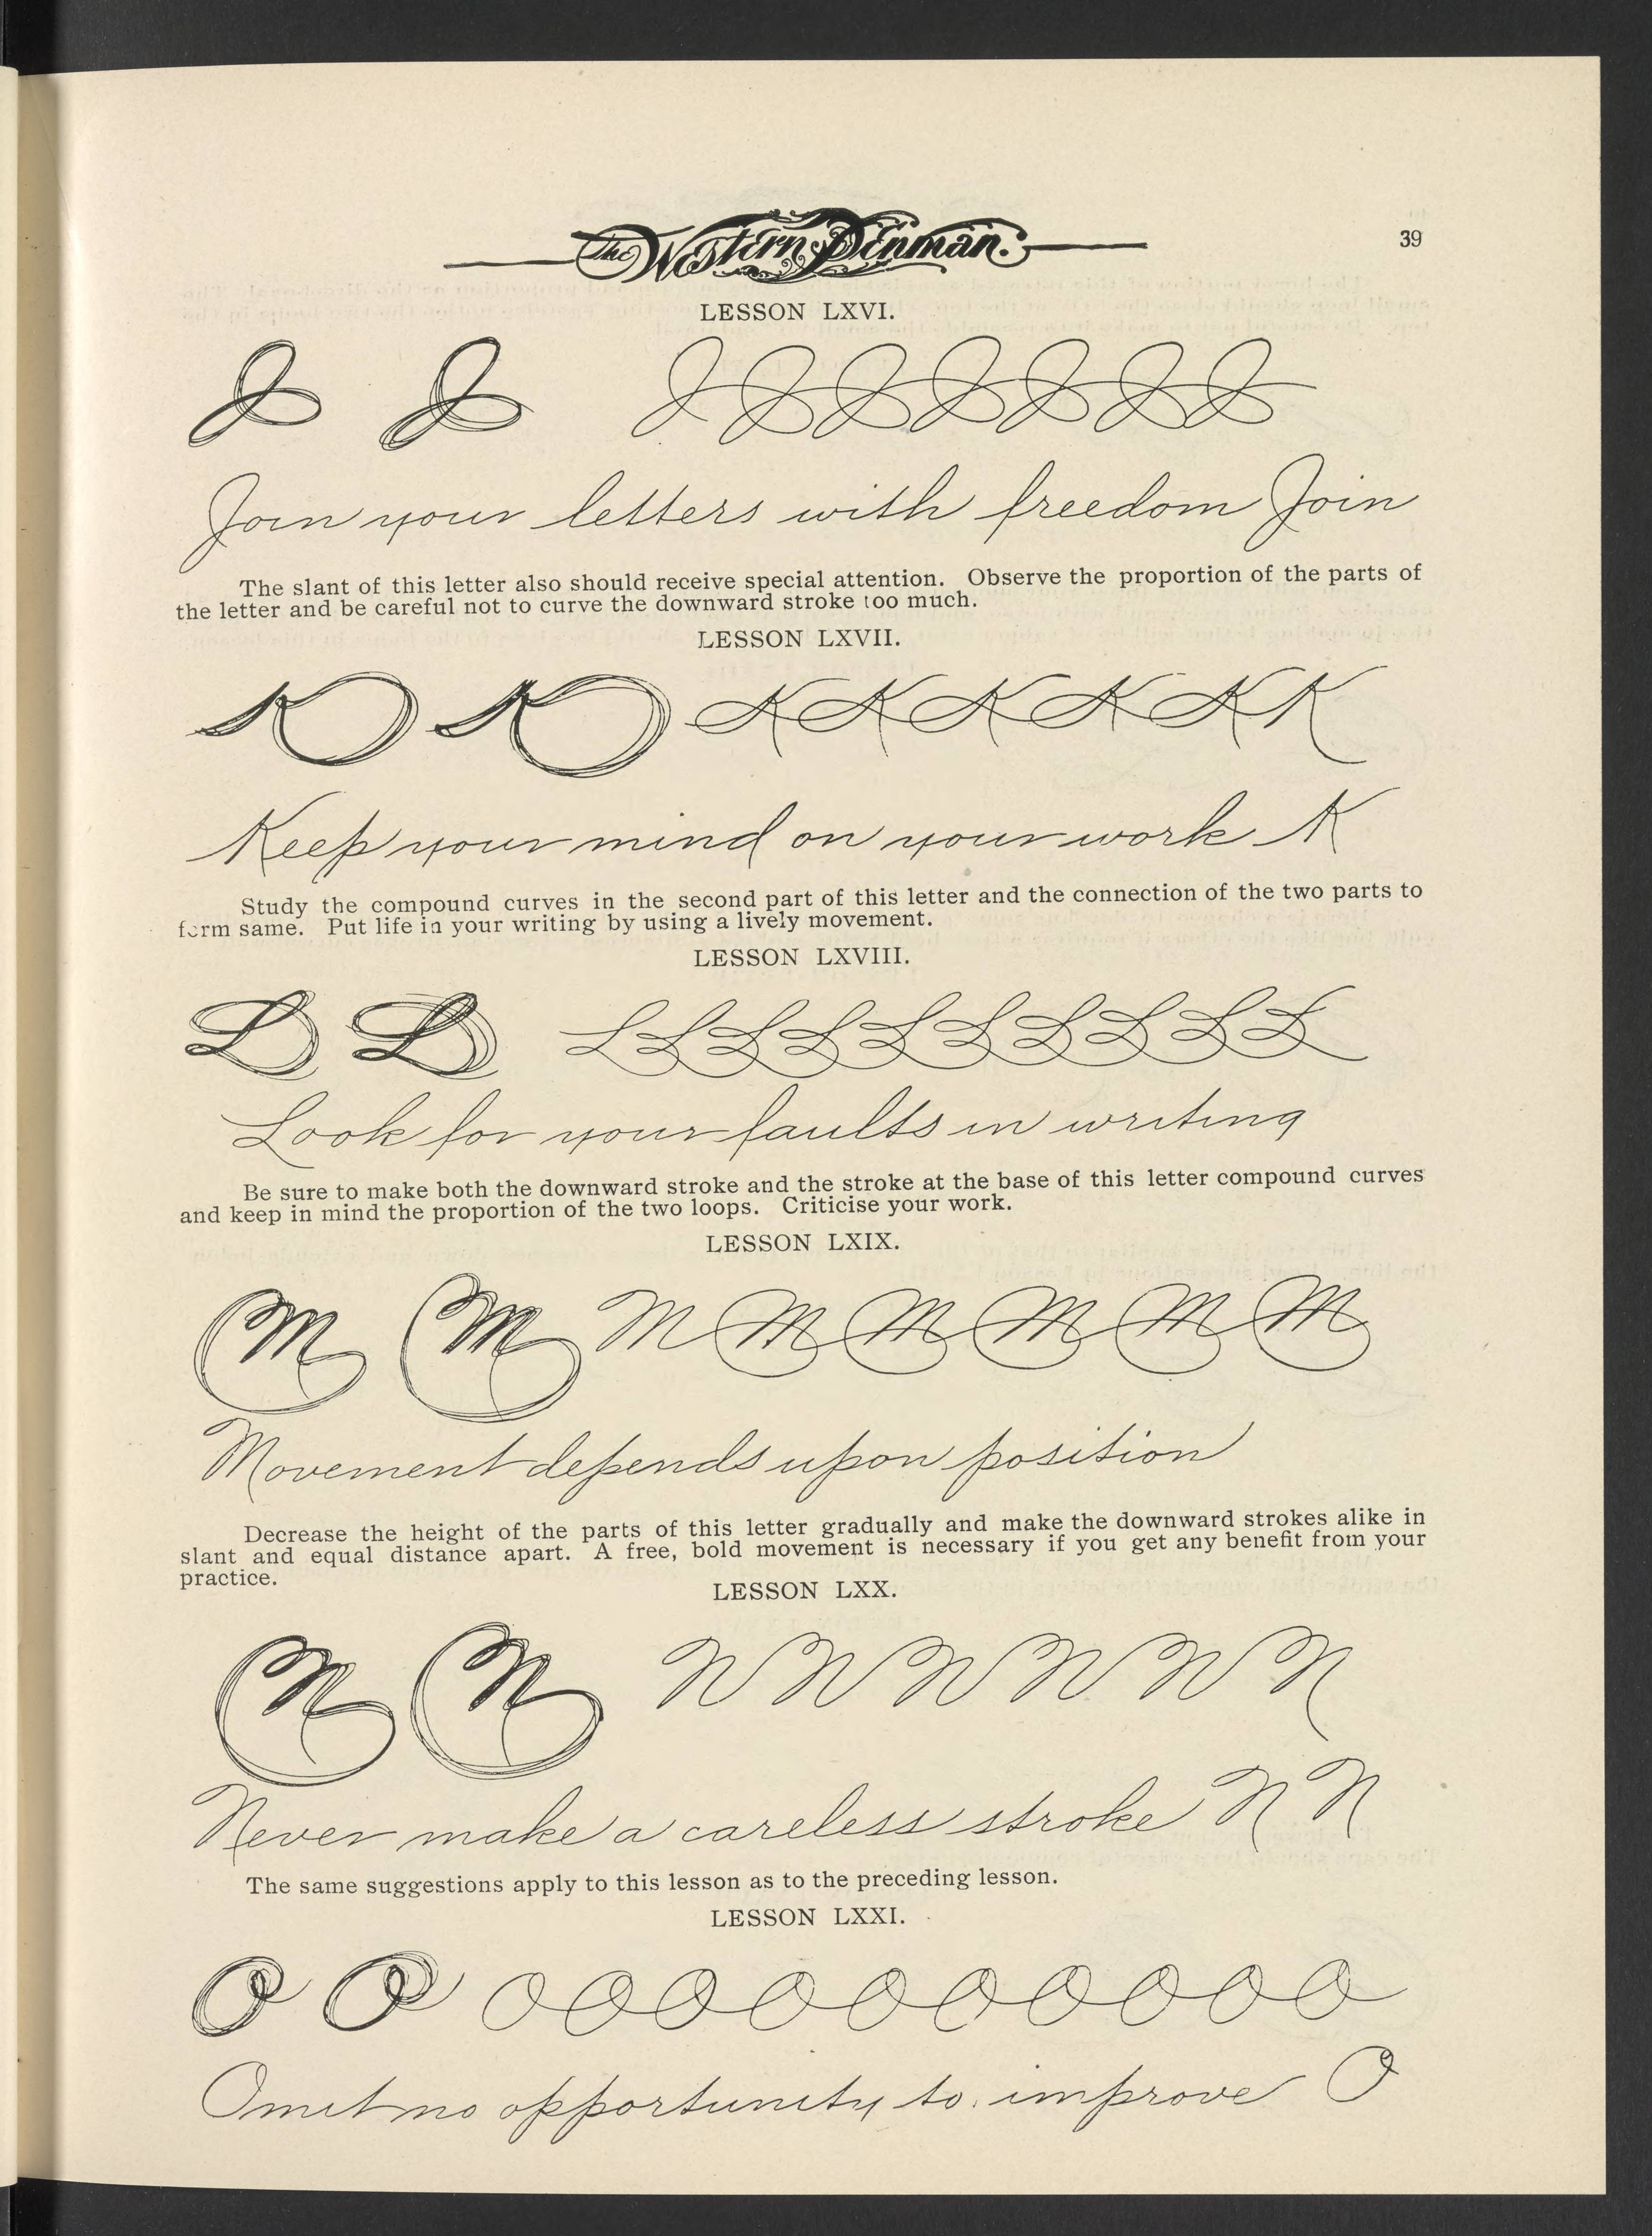 The Western Penman.
39
LESSON LXVI.
J J J J J J J J J
Join your letters with freedom Join
The slant of this letter also should receive special attention. Observe the proportion of the parts of
the letter and be careful not to curve the downward stroke too much.
LESSON LXVII.
K K K K K K K K
Keep your mind on your work K
Study the compound curves in the second part of this letter and the connection of the two parts to
form same. Put life in your writing by using a lively movement.
LESSON LXVIII.
L L L L L L L L L L L L
Look for your faults in writing
Be sure to make both the downward stroke and the stroke at the base of this letter compound curves
and keep in mind the proportion of the two loops. Criticise your work.
LESSON LXIX.
M M M M M M M M
Movement depends upon position
Decrease the height of the parts of this letter gradually and make the downward strokes alike in
slant and equal distance apart. A free, bold movement is necessary if you get any benefit from your
practice.
LESSON LXX.
N N N N N N N N
Never make a careless stroke N N
The same suggestions apply to this lesson as to the preceding lesson.
LESSON LXXI.
O O O O O O O O O O O O O
Omit no opportunity to improve O